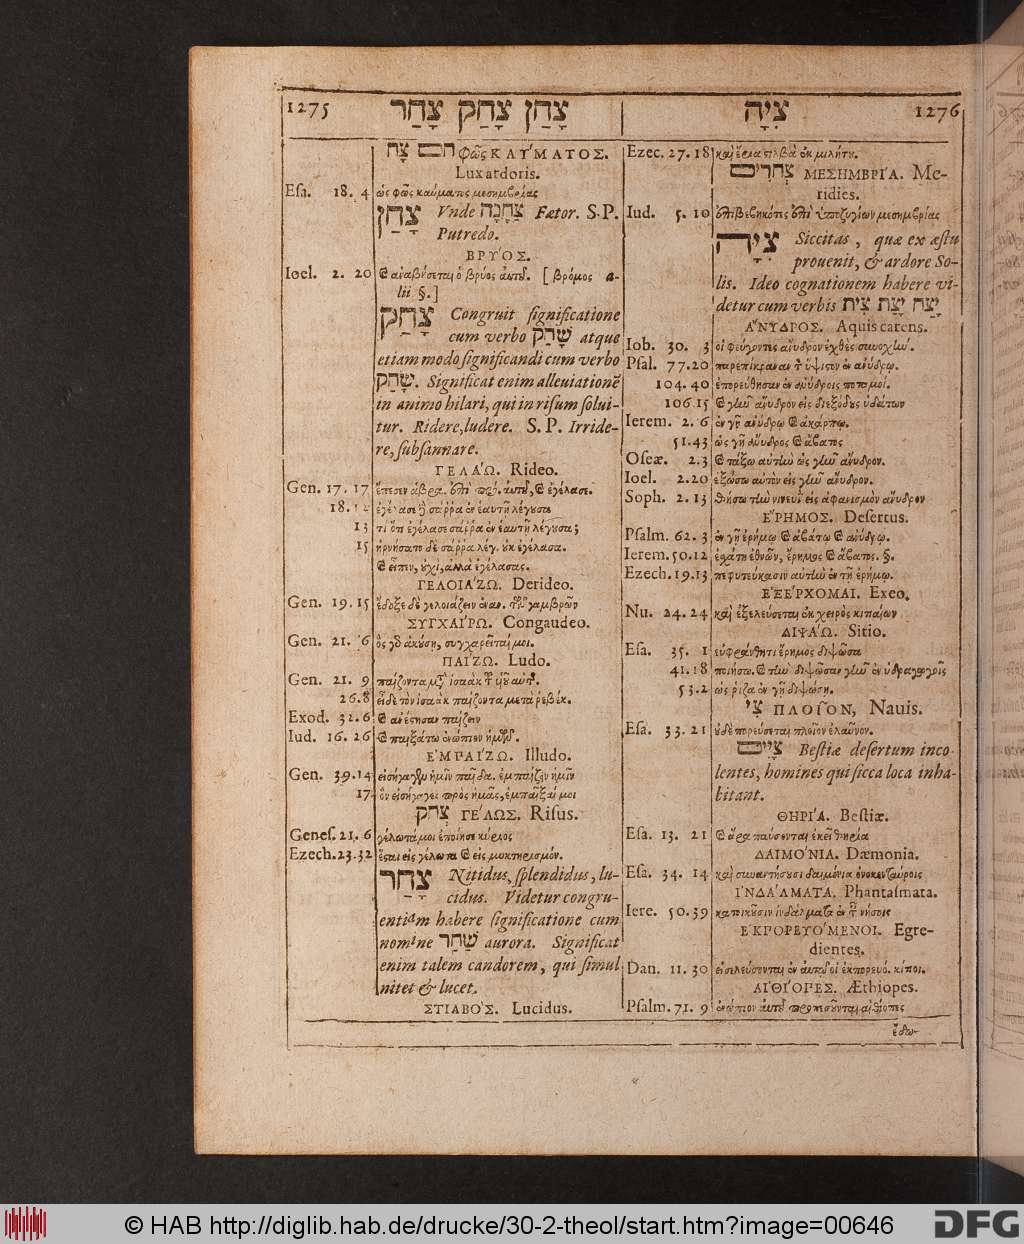 1275 צָחַן צָחַק צָחַר
צִיָּה 1276
צַח חֹם φῶς ΚΑΎΜΑΤΟΣ.
Lux ardoris.
Esa. 18. 4 ὡς φῶς καύματος μεσημβρίας
צָחַן Vnde צַחֲנָה Fœtor. S. P.
Putredo.
ΒΡΥ͂ΟΣ.
Ioel. 2. 20 καὶ ἀναβήσεται ὁ βρύος αὐτοῦ. [ βρόμος a-
lii §.]
צָחַק Congruit significatione
cum verbo שָׂחַק atque
etiam modo significandi cum verbo
שָׂחַק. Significat enim alleuiationẽ
in animo hilari, qui in risum solui-
tur. Ridere, ludere. S. P. Irride-
re, subsannare.
ΓΕΛΆΩ. Rideo.
Gen. 17. 17 ἔπεσεν ἁβρα. ἐπὶ πρό. αὐτοῦ, καὶ ἐγέλασε.
18. 12 ἐγέλασε δὲ σάρρα ἐν ἑαυτῇ λέγουσα
13 τί ὅτι ἐγέλασε σάρρα ἐν ἑαυτῇ λέγουσα;
15 ἠρνήσατο δὲ σάρρα λέγ. οὐκ ἐγέλασα.
καὶ εἶπεν, οὐχὶ, ἀλλὰ ἐγέλασας.
ΓΕΛΟΙΆΖΩ. Derideo.
Gen. 19. 15 ἔδοξε δὲ γελοιάζειν ἐναν. τῶν γαμβρῶν
ΣΥΓΧΑΊΡΩ. Congaudeo.
Gen. 21. 6 ὃς γὰρ ἀκούσῃ, συγχαρεῖταί μοι.
ΠΑΊΖΩ. Ludo.
Gen. 21. 9 παίζοντα μετὰ ἰσαὰκ τοῦ υἱοῦ αὐτῆς.
26. 8 εἶδε τὸν ἰσαὰκ παίζοντα μετὰ ῥεβέκ.
Exod. 32. 6 καὶ ἀνέστησαν παίζειν
Iud. 16. 26 καὶ παιξάτω ἐνώπιον ἡμῶν.
ἘΜΠΑΊΖΩ. Illudo.
Gen. 39. 14 εἰσήγαγεν ἡμῖν παῖδα. ἐμπαίζειν ἡμῖν
17 ὃν εἰσήγαγες πρὸς ἡμᾶς, ἐμπαῖξαί μοι
צְחֹק ΓΈΛΩΣ. Risus.
Genes. 21. 6 γέλωτά μοι ἐποίησε κύριος
Ezech. 23. 32 ἔσται εἰς γέλωτα καὶ εἰς μυκτηρισμόν.
צָחַר Nitidus, splendidus, lu-
cidus. Videtur congru-
entiam habere significatione cum
nomine שַׁחַר aurora. Significat
enim talem candorem, qui simul
nitet & lucet.
ΣΤΙΛΒΌΣ. Lucidus.
Ezec. 27. 18 καὶ ἔρια στιλβὰ ἐκ μιλήτου.
צְחֹרִים ΜΕΣΗΜΒΡΊΑ. Me-
ridies.
Iud. 5. 10 ἐπιβεβηκότες ἐπὶ ὑποζυγίων μεσημβρίας
צִיָּה Siccitas, quæ ex æstu
prouenit, & ardore So-
lis. Ideo cognationem habere vi-
detur cum verbis יָצַת יָצַת צִית
ἌΝΥΔΡΟΣ. Aquis carens.
Iob. 30. 3 οἱ φεύγοντες ἄνυδρον ἐχθὲς συνοχήν.
Psal. 77. 20 παρεπίκραναν τὸν ὕψιστον ἐν ἀνύδρῳ.
104. 40 ἐπορεύθησαν ἐν ἀνύδροις ποταμοί.
106. 15 καὶ γῆν ἄνυδρον εἰς διεξόδους ὑδάτων
Ierem. 2. 6 ἐν γῇ ἀνύδρῳ καὶ ἀκάρπῳ.
51. 43 ὡς γῆ ἄνυδρος καὶ ἄβατος
Oseæ. 2. 3 καὶ τάξω αὐτὴν ὡς γῆν ἄνυδρον.
Ioel. 2. 20 ἐξώσω αὐτὸν εἰς γῆν ἄνυδρον.
Soph. 2. 13 θήσω τὴν νινευῆ εἰς ἀφανισμὸν ἄνυδρον
ἜΡΗΜΟΣ. Desertus.
Psalm. 62. 3 ἐν γῇ ἐρήμῳ καὶ ἀβάτῳ καὶ ἀνύδρῳ.
Ierem. 50. 12 ἐσχάτη ἐθνῶν, ἔρημος καὶ ἄβατος. §.
Ezech. 19. 13 πεφυτεύκασιν αὐτὴν ἐν τῇ ἐρήμῳ.
ἘΞΈΡΧΟΜΑΙ. Exeo.
Nu. 24. 24 καὶ ἐξελεύσεται ἐκ χειρὸς κιτιαίων
ΔΙΨΆΩ. Sitio.
Esa. 35. 1 εὐφράνθητι ἔρημος διψῶσα
41. 18 ποιήσω. καὶ τὴν διψῶσαν γῆν ἐν ὑδραγωγοῖς
53. 2 ὡς ῥίζα ἐν γῇ διψώσῃ.
צִי ΠΛΟΙ͂ΟΝ, Nauis.
Esa. 33. 21 οὐδὲ πορεύσεται πλοῖον ἐλαῦνον.
צִיִּים Bestiæ desertum inco-
lentes, homines qui sicca loca inha-
bitant.
ΘΗΡΊΑ. Bestiæ.
Esa. 13. 21 καὶ ἄρα παύσονται ἐκεῖ θηρία
ΔΑΙΜΌΝΙΑ. Dæmonia.
Esa. 34. 14 καὶ συναντήσουσι δαιμόνια ὀνοκενταύροις
ἸΝΔΆΛΜΑΤΑ. Phantasmata.
Iere. 50. 39 κατοικοῦσιν ἰνδάλματα ἐν ταῖς νήσοις
ἘΚΠΟΡΕΥΌΜΕΝΟΙ. Egre-
dientes.
Dan. 11. 30 εἰσελεύσονται ἐν αὐτῷ οἱ ἐκπορευό. κίτιοι.
ΑἸΘΊΟΠΕΣ. Æthiopes.
Psalm. 71. 9 ἐνώπιον αὐτοῦ προπεσοῦνται αἰθίοπες
ἔδω-
© HAB http://diglib.hab.de/drucke/30-2-theol/start.htm?image=00646
DFG